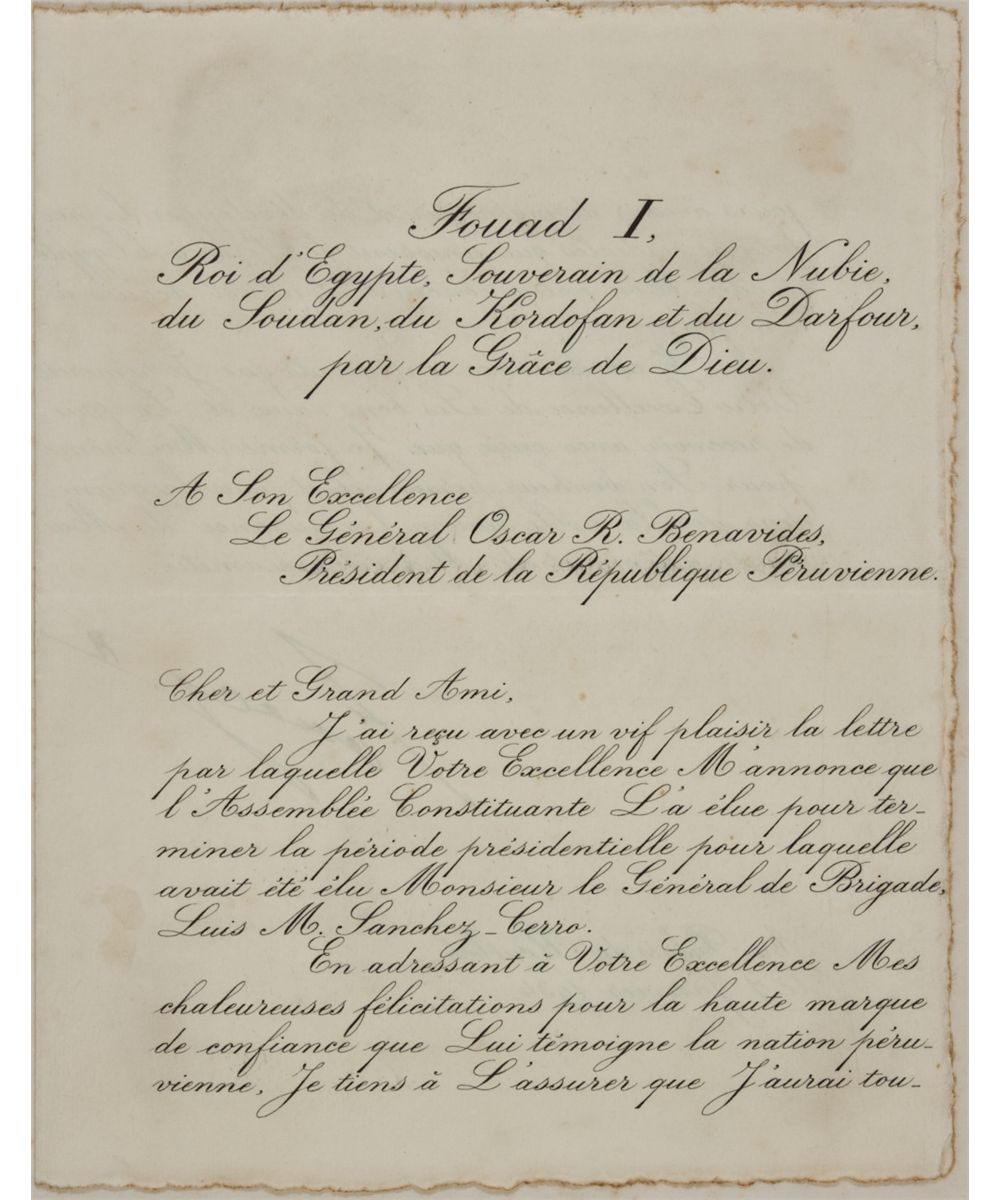 Fouad I,
Roi d'Egypte, Souverain de la Nubie,
du Soudan, du Kordofan et du Darfour,
par la Grâce de Dieu.
A Son Excellence
Le Général Oscar R. Benavides,
Président de la République Péruvienne.
Cher et Grand Ami,
J'ai reçu avec un vif plaisir la lettre
par laquelle Votre Excellence M'annonce que
l'Assemblée Constituante L'a élue pour ter-
miner la période présidentielle pour laquelle
avait été élu Monsieur le Général de Brigade,
Luis M. Sanchez-Cerro.
En adressant à Votre Excellence Mes
chaleureuses félicitations pour la haute marque
de confiance que Lui témoigne la nation péru-
vienne, Je tiens à L'assurer que J'aurai tou-